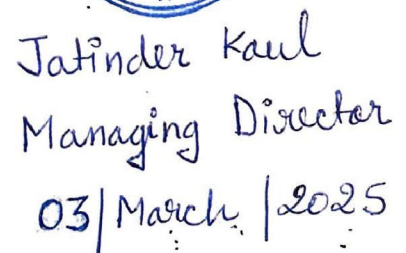 Jatinder Kaul
Managing Director
03/March/2025